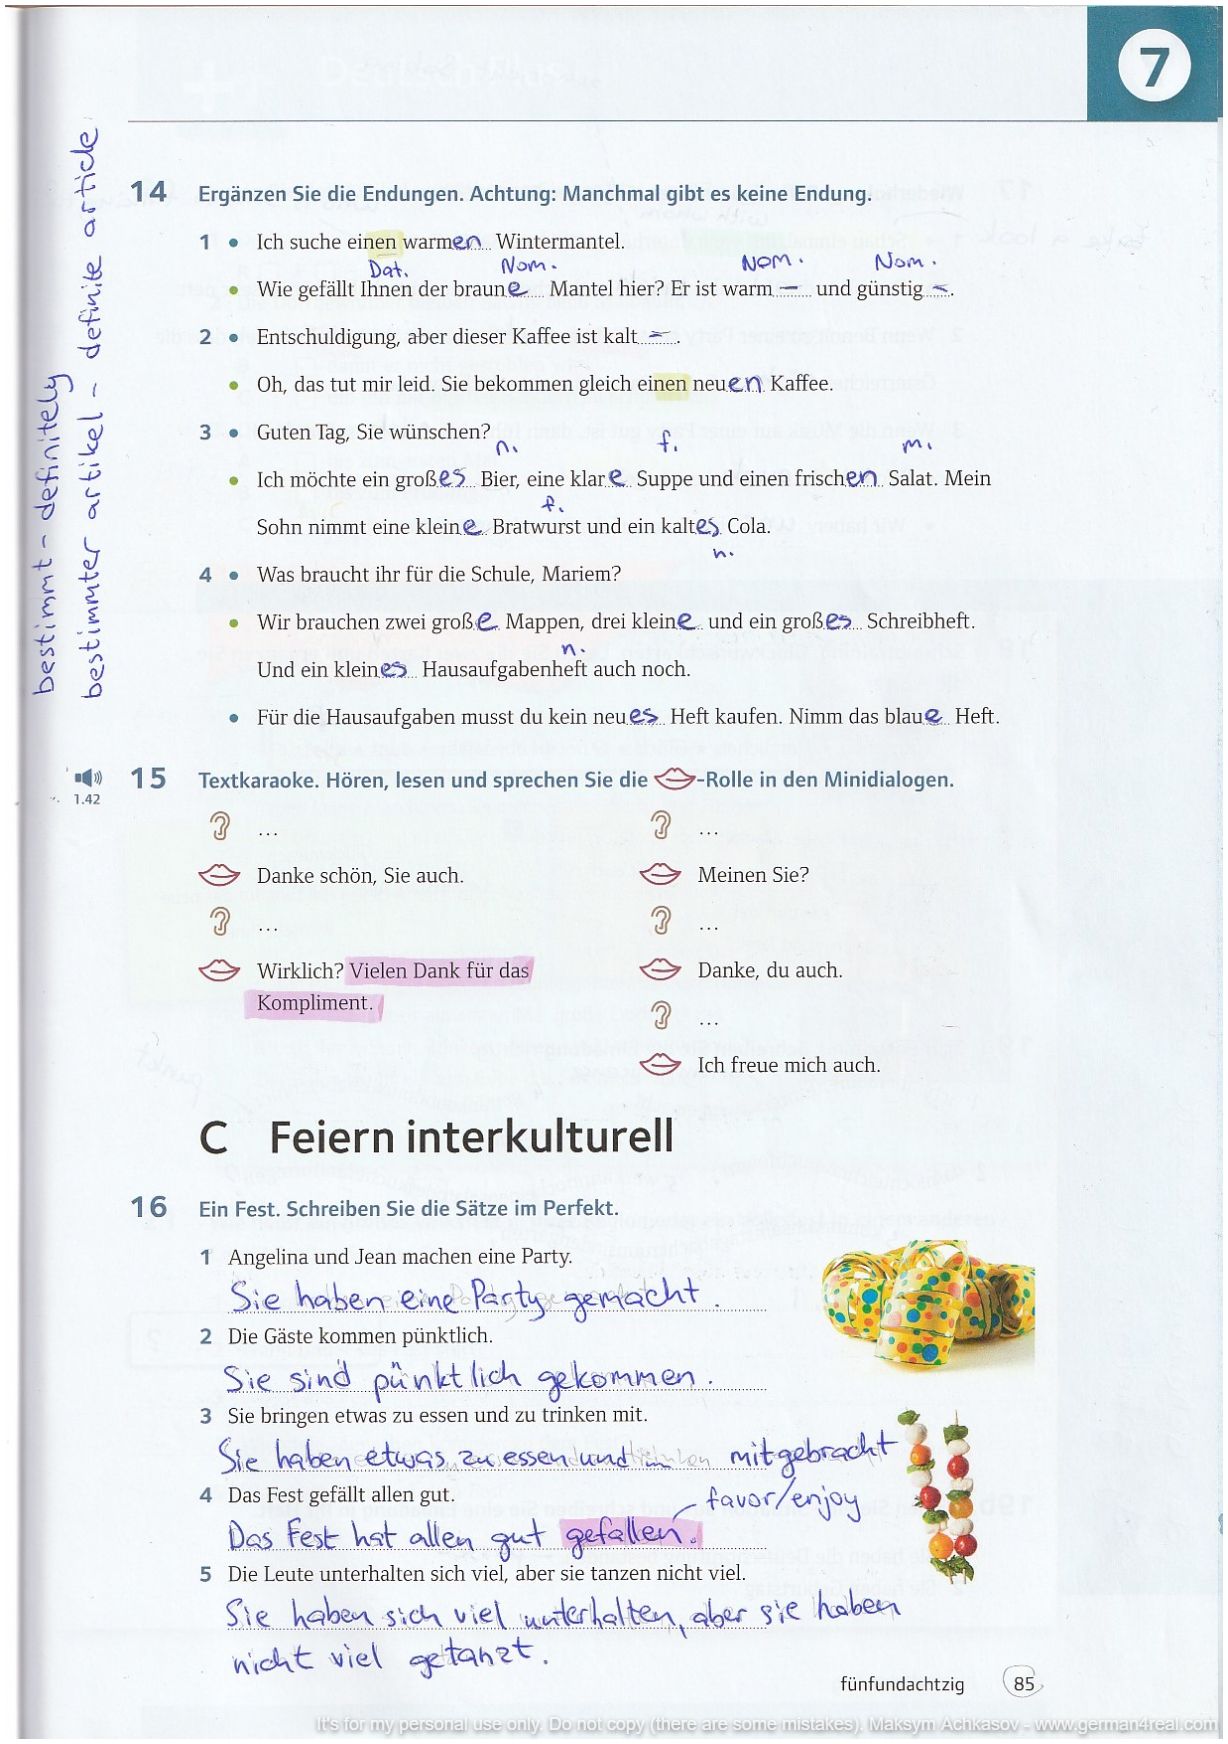 7
bestimmt - definitely
bestimmter artikel - definite article
14 Ergänzen Sie die Endungen. Achtung: Manchmal gibt es keine Endung.
1 • Ich suche einen warmen Wintermantel.
Dat. Nom. Nom. Nom.
• Wie gefällt Ihnen der braune Mantel hier? Er ist warm – und günstig –.
2 • Entschuldigung, aber dieser Kaffee ist kalt –.
• Oh, das tut mir leid. Sie bekommen gleich einen neuen Kaffee.
3 • Guten Tag, Sie wünschen?
n. f. m.
• Ich möchte ein großes Bier, eine klare Suppe und einen frischen Salat. Mein
f.
Sohn nimmt eine kleine Bratwurst und ein kaltes Cola.
n.
4 • Was braucht ihr für die Schule, Mariem?
• Wir brauchen zwei große Mappen, drei kleine und ein großes Schreibheft.
n.
Und ein kleines Hausaufgabenheft auch noch.
• Für die Hausaufgaben musst du kein neues Heft kaufen. Nimm das blaue Heft.
1.42
15 Textkaraoke. Hören, lesen und sprechen Sie die -Rolle in den Minidialogen.
...
Danke schön, Sie auch.
...
Wirklich? Vielen Dank für das
Kompliment.
...
Meinen Sie?
...
Danke, du auch.
...
Ich freue mich auch.
C Feiern interkulturell
16 Ein Fest. Schreiben Sie die Sätze im Perfekt.
1 Angelina und Jean machen eine Party.
Sie haben eine Party gemacht.
2 Die Gäste kommen pünktlich.
Sie sind pünktlich gekommen.
3 Sie bringen etwas zu essen und zu trinken mit.
Sie haben etwas zu essen und mitgebracht
4 Das Fest gefällt allen gut.
favor/enjoy
Das Fest hat allen gut gefallen.
5 Die Leute unterhalten sich viel, aber sie tanzen nicht viel.
Sie haben sich viel unterhalten, aber sie haben
nicht viel getanzt.
fünfundachtzig 85
It's for my personal use only. Do not copy (there are some mistakes). Maksym Achkasov - www.german4real.com